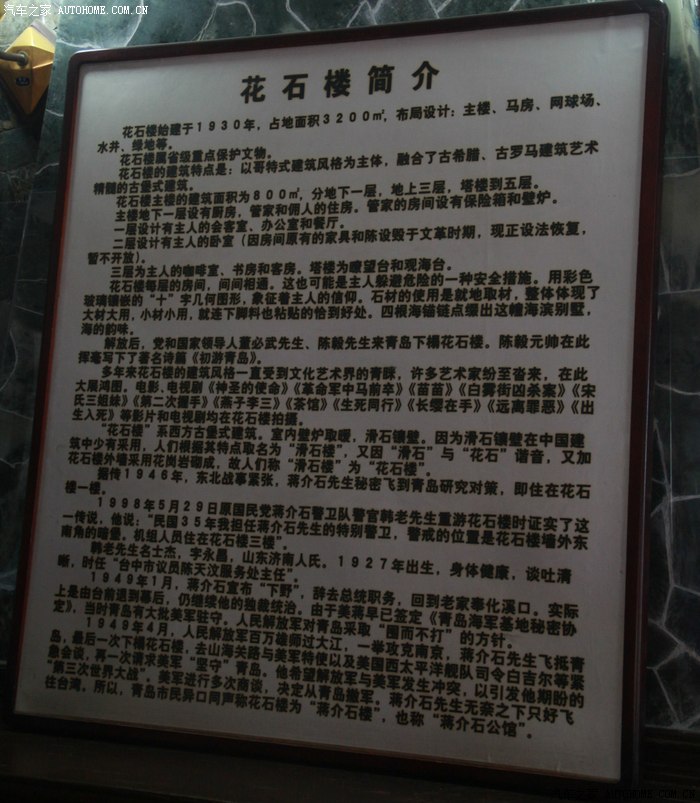 汽车之家 AUTOHOME.COM.CN
花石楼简介
花石楼始建于1930年，占地面积3200㎡，布局设计：主楼、马房、网球场、
水井、绿地等。
花石楼属省级重点保护文物。
花石楼的建筑特点是：以哥特式建筑风格为主体，融合了古希腊、古罗马建筑艺术
精髓的古堡式建筑。
花石楼主楼的建筑面积为800㎡，分地下一层，地上三层，塔楼到五层。
主楼地下一层设有厨房，管家和佣人的住房。管家的房间设有保险箱和壁炉。
一层设计有主人的会客室、办公室和餐厅。
二层设计有主人的卧室（因房间原有的家具和陈设毁于文革时期，现正设法恢复，
暂不开放）。
三层为主人的咖啡室、书房和客房。塔楼为瞭望台和观海台。
花石楼每层的房间，间间相通。这也可能是主人躲避危险的一种安全措施。用彩色
玻璃镶嵌的“十”字几何图形，象征着主人的信仰。石材的使用是就地取材，整体体现了
大材大用，小材小用，就连下脚料也粘贴的恰到好处。四根海锚链点缀出这幢海滨别墅，
海的韵味。
解放后，党和国家领导人董必武先生、陈毅先生来青岛下榻花石楼。陈毅元帅在此
挥毫写下了著名诗篇《初游青岛》。
多年来花石楼的建筑风格一直受到文化艺术界的青睐，许多艺术家纷至沓来，在此
大展鸿图。电影、电视剧《神圣的使命》《革命军中马前卒》《苗苗》《白雾街凶杀案》《宋
氏三姐妹》《第二次握手》《燕子李三》《茶馆》《生死同行》《长缨在手》《远离罪恶》《出
生入死》等影片和电视剧均在花石楼拍摄。
“花石楼”系西方古堡式建筑。室内壁炉取暖，滑石镶壁。因为滑石镶壁在中国建
筑中少有采用，人们根据其特点取名为“滑石楼”，又因“滑石”与“花石”谐音，又加
花石楼外墙采用花岗岩砌成，故人们称“滑石楼”为“花石楼”。
据传1946年，东北战事紧张，蒋介石先生秘密飞到青岛研究对策，即住在花石
楼一楼。
1998年5月29日原国民党蒋介石警卫队警官韩老先生重游花石楼时证实了这
一传说，他说：“民国35年我担任蒋介石先生的特别警卫，警戒的位置是花石楼墙外东
南角的暗堡。机组人员住在花石楼三楼”。
韩老先生名士杰，字永昌，山东济南人氏。1927年出生，身体健康，谈吐清
晰，时任“台中市议员陈天汶服务处主任”。
1949年1月，蒋介石宣布“下野”，辞去总统职务，回到老家奉化溪口。实际
上是由台前退到幕后，仍继续他的独裁统治。由于美蒋早已签定《青岛海军基地秘密协
定》，当时青岛有大批美军驻守，人民解放军对青岛采取“围而不打”的方针。
1949年4月，人民解放军百万雄师过大江，一举攻克南京，蒋介石先生飞抵青
岛，最后一次下榻花石楼，去山海关路与美军特使以及美国西太平洋舰队司令白吉尔等紧
急会谈，再一次请求美军“坚守”青岛。他希望解放军与美军发生冲突，以引发他期盼的
“第三次世界大战”，美军进行多次商谈，决定从青岛撤军。蒋介石先生无奈之下只好飞
往台湾。所以，青岛市民异口同声称花石楼为“蒋介石楼”，也称“蒋介石公馆”。
汽车之家 AUTOHOME.COM.CN